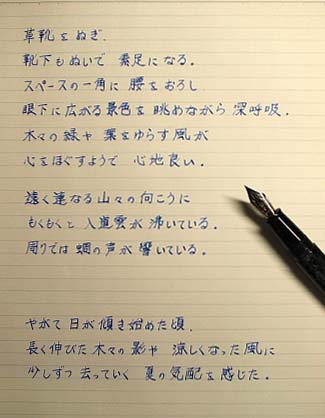 革靴をぬぎ、
靴下もぬいで 素足になる。
スペースの一角に 腰をおろし
眼下に広がる景色を 眺めながら 深呼吸。
木々の緑や 葉をゆらす風が
心をほぐすようで 心地良い。
遠く連なる山々の向こうに
もくもくと 入道雲が 沸いている。
周りでは 蜩の声が 響いている。
やがて 日が傾き始めた頃、
長く伸びた木々の影や 涼しくなった風に
少しずつ 去っていく 夏の気配を感じた。